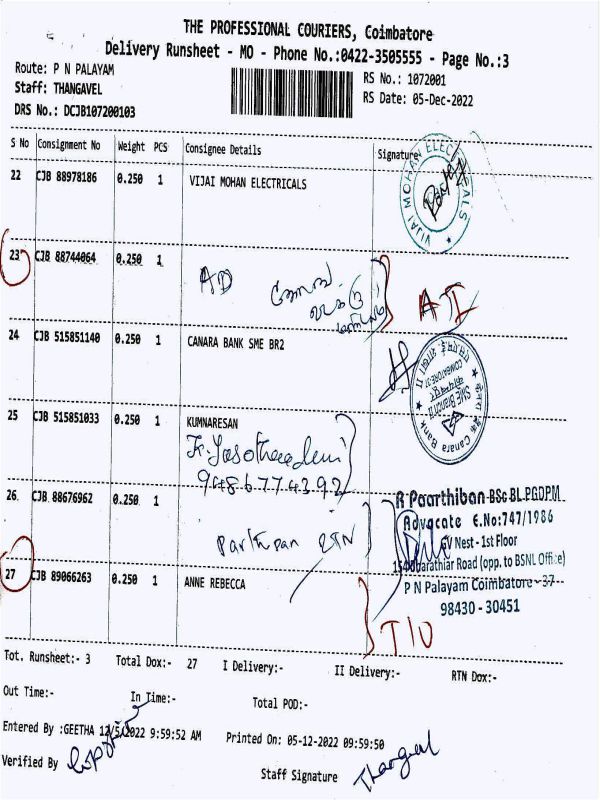 THE PROFESSIONAL COURIERS, Coimbatore
Delivery Runsheet - MO - Phone No.:0422-3505555 - Page No.:3
Route: P N PALAYAM
RS No.: 1072001
Staff: THANGAVEL
RS Date: 05-Dec-2022
DRS No.: DCJB107200103
S No Consignment No Weight PCS Consignee Details Signature
22 CJB 88978186 0.250 1 VIJAI MOHAN ELECTRICALS
VIJAI MOHAN ELECTRICALS
23 CJB 88744064 0.250 1
AD
24 CJB 515851140 0.250 1 CANARA BANK SME BR2
Canara Bank
25 CJB 515851033 0.250 1 KUMNARESAN
9486774392
26 CJB 88676962 0.250 1
R Paarthiban BSc BL PGDPM
Advocate E.No:747/1986
Nest - 1st Floor
Road (opp. to BSNL Office)
P N Palayam Coimbatore - 37
98430 - 30451
27 CJB 89066263 0.250 1 ANNE REBECCA
Tot. Runsheet:- 3 Total Dox:- 27 I Delivery:- II Delivery:- RTN Dox:-
Out Time:- In Time:- Total POD:-
Entered By :GEETHA 12/5/2022 9:59:52 AM Printed On: 05-12-2022 09:59:50
Verified By
Staff Signature